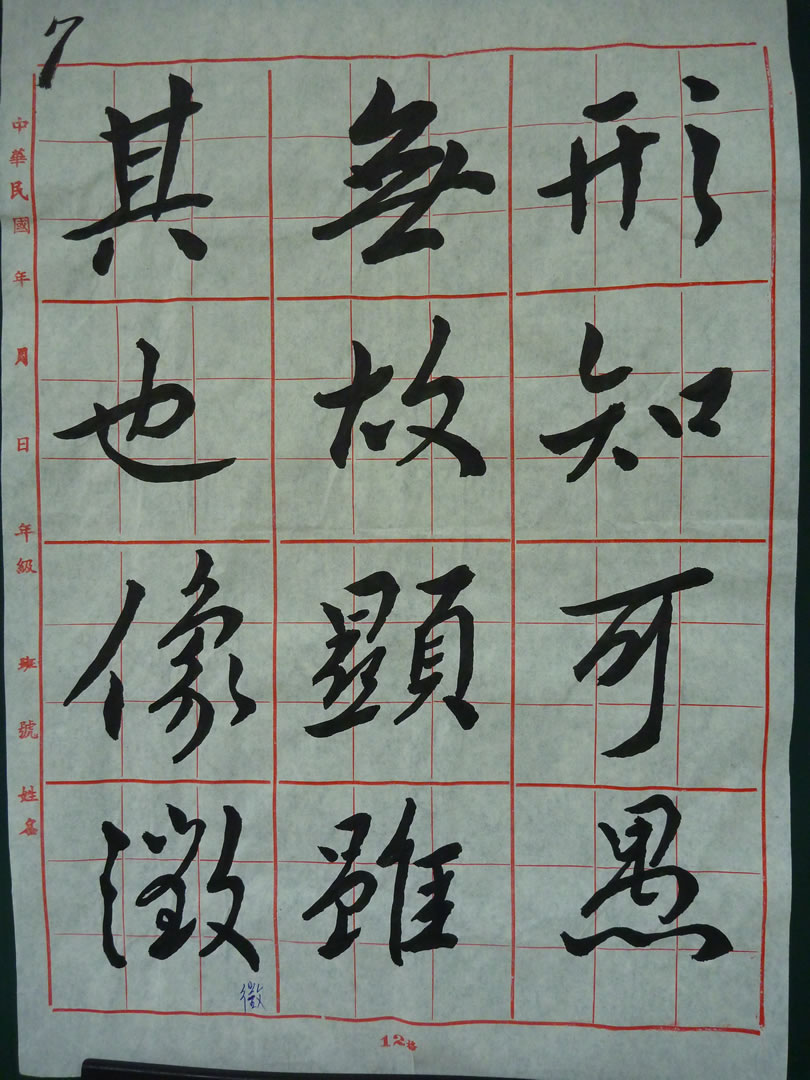 7
其無形
也故知
像顯可
徵雖愚
徵
中華民國 年 月 日 年級 班 號 姓名
12格